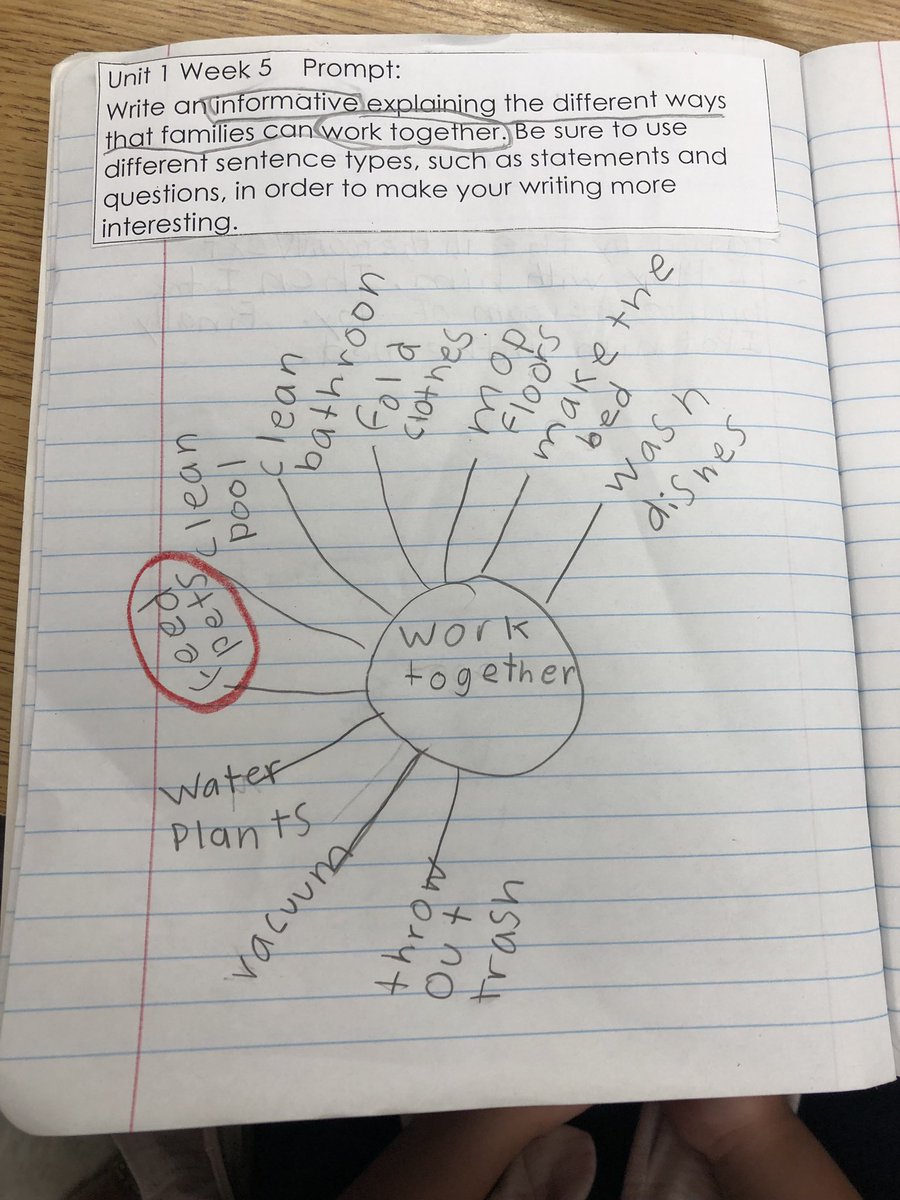 Unit 1 Week 5 Prompt:
Write an informative explaining the different ways
that families can work together. Be sure to use
different sentence types, such as statements and
questions, in order to make your writing more
interesting.
work
together
feed
pets
clean
pool
clean
bathroon
Fold
clothes
mop
Floors
make the
bed
wash
dishes
Water
Plants
vacuum
throw
out
trash